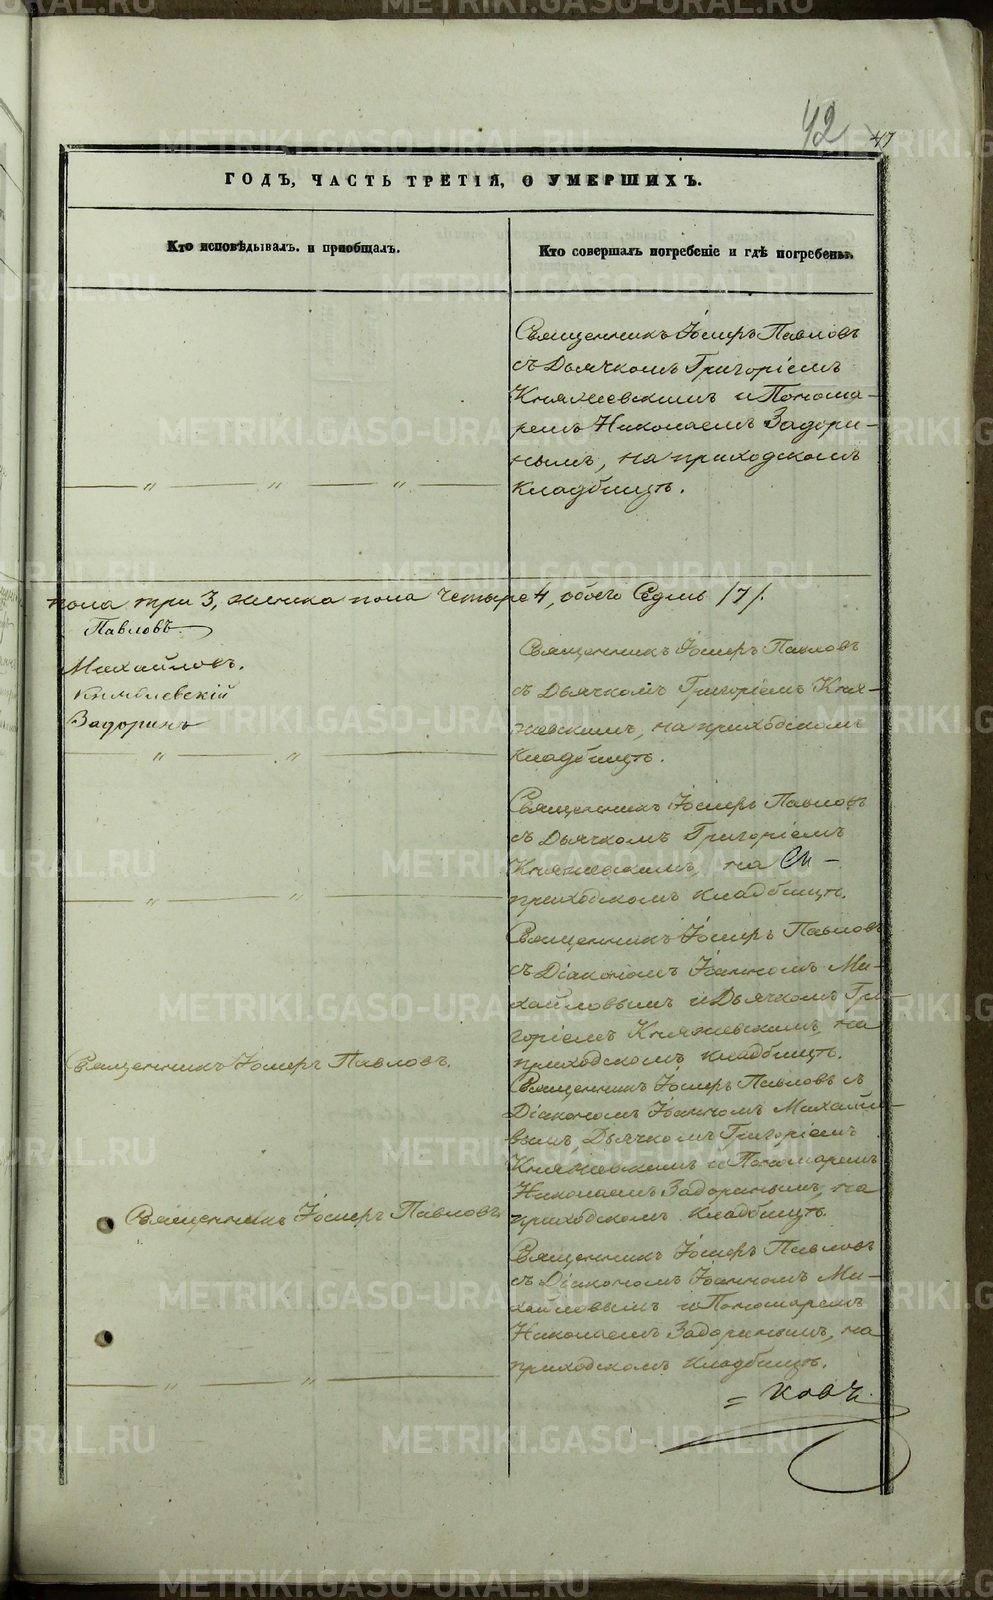 42 47
ГОДЪ, ЧАСТЬ ТРЕТІЯ, О УМЕРШИХЪ.
Кто исповѣдывалъ и приобщалъ.
Кто совершалъ погребеніе и гдѣ погребены.
Священникъ Іосифъ Павловъ
съ Дьячкомъ Григоріемъ
Княжевскимъ и Понома-
ремъ Николаемъ Задори-
нымъ, на приходскомъ
кладбищѣ.
пола три 3, женска пола четыре 4, обоего Седмь /7/.
Павловъ
Михайловъ.
Задоринъ
Священникъ Іосифъ Павловъ
съ Дьячкомъ Григоріемъ Кня-
жевскимъ, на приходскомъ
кладбищѣ.
Священникъ Іосифъ Павловъ
съ Дьячкомъ Григоріемъ
Княжевскимъ, на
приходскомъ кладбищѣ.
Священникъ Іосифъ Павловъ
съ Діакономъ Іоанномъ Ми-
хайловымъ и Дьячкомъ Гри-
горіемъ Княжевскимъ, на
приходскомъ кладбищѣ.
Священникъ Іосифъ Павловъ.
Священникъ Іосифъ Павловъ съ
Діакономъ Іоанномъ Михайло-
вымъ, Дьячкомъ Григоріемъ
Княжевскимъ и Пономаремъ
Николаемъ Задоринымъ, на
приходскомъ кладбищѣ.
Священникъ Іосифъ Павловъ
Священникъ Іосифъ Павловъ
съ Діакономъ Іоанномъ Ми-
хайловымъ и Пономаремъ
Николаемъ Задоринымъ, на
приходскомъ кладбищѣ.
= ковъ.
METRIKI.GASO-URAL.RU